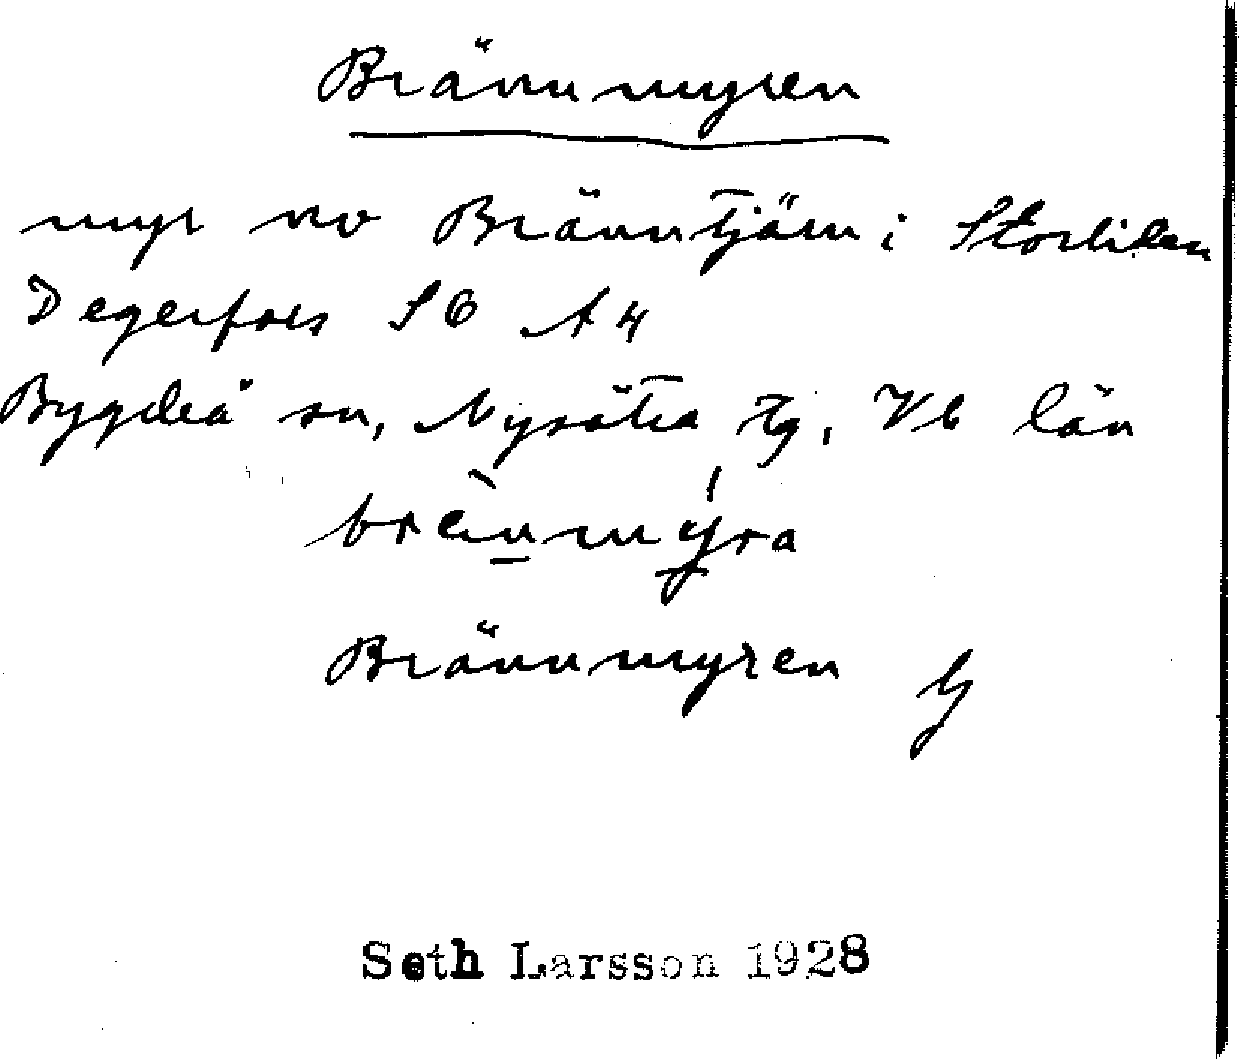 Brännmyren
myr no Bränntjärn i Storliden
Degerfors S6 A4
Bygdeå sn, Nysätra tg, Vb län
brännmyra
Brännmyren G
Seth Larsson 1928